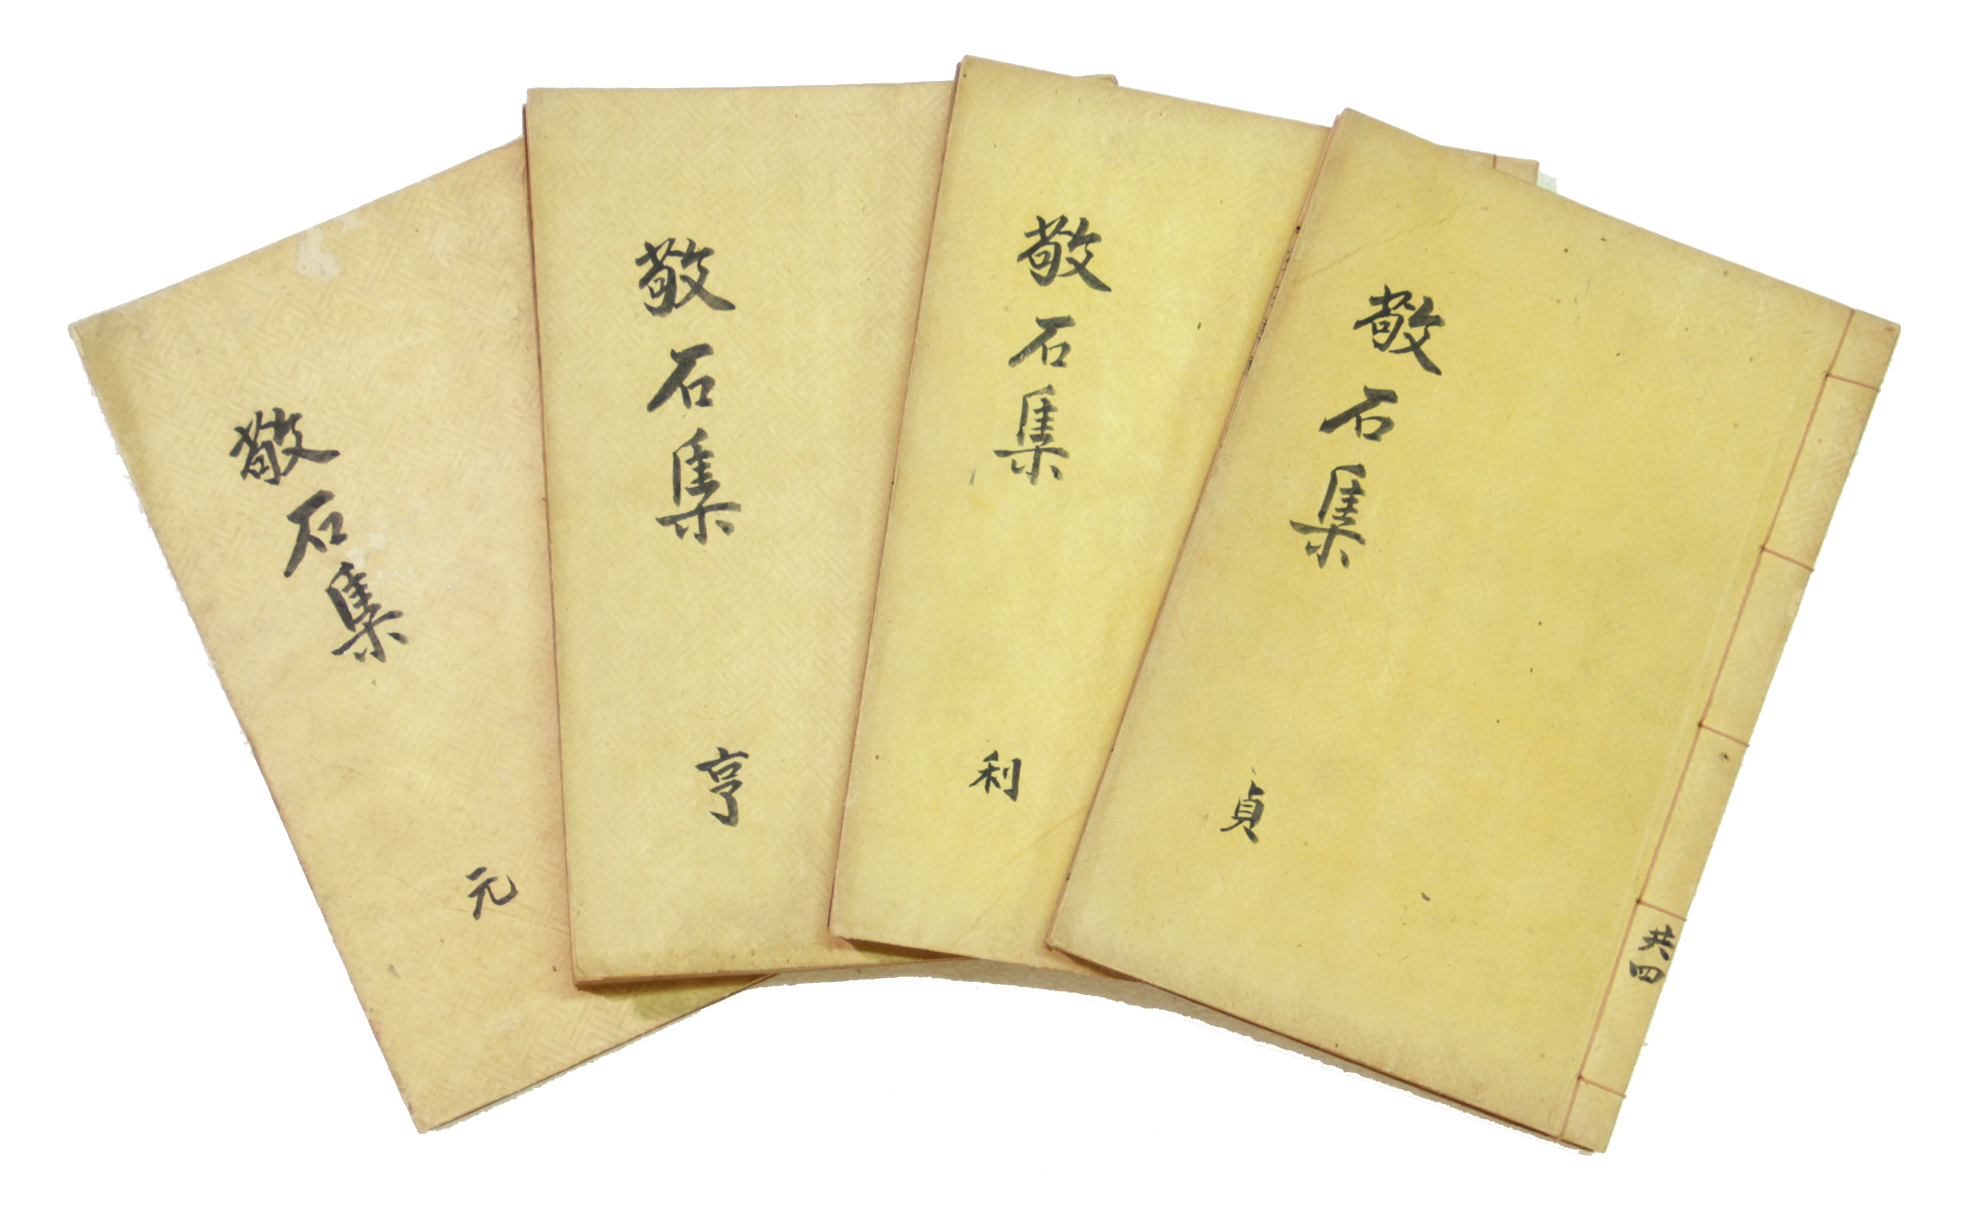 敬石集
元
敬石集
亨
敬石集
利
敬石集
貞
共四